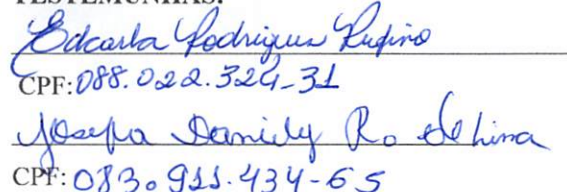 TESTEMUNHAS:
Edcarla Rodrigues Rufino
CPF: 088.022.324-31
Josefa Daniely R. de Lima
CPF: 083.911.434-65